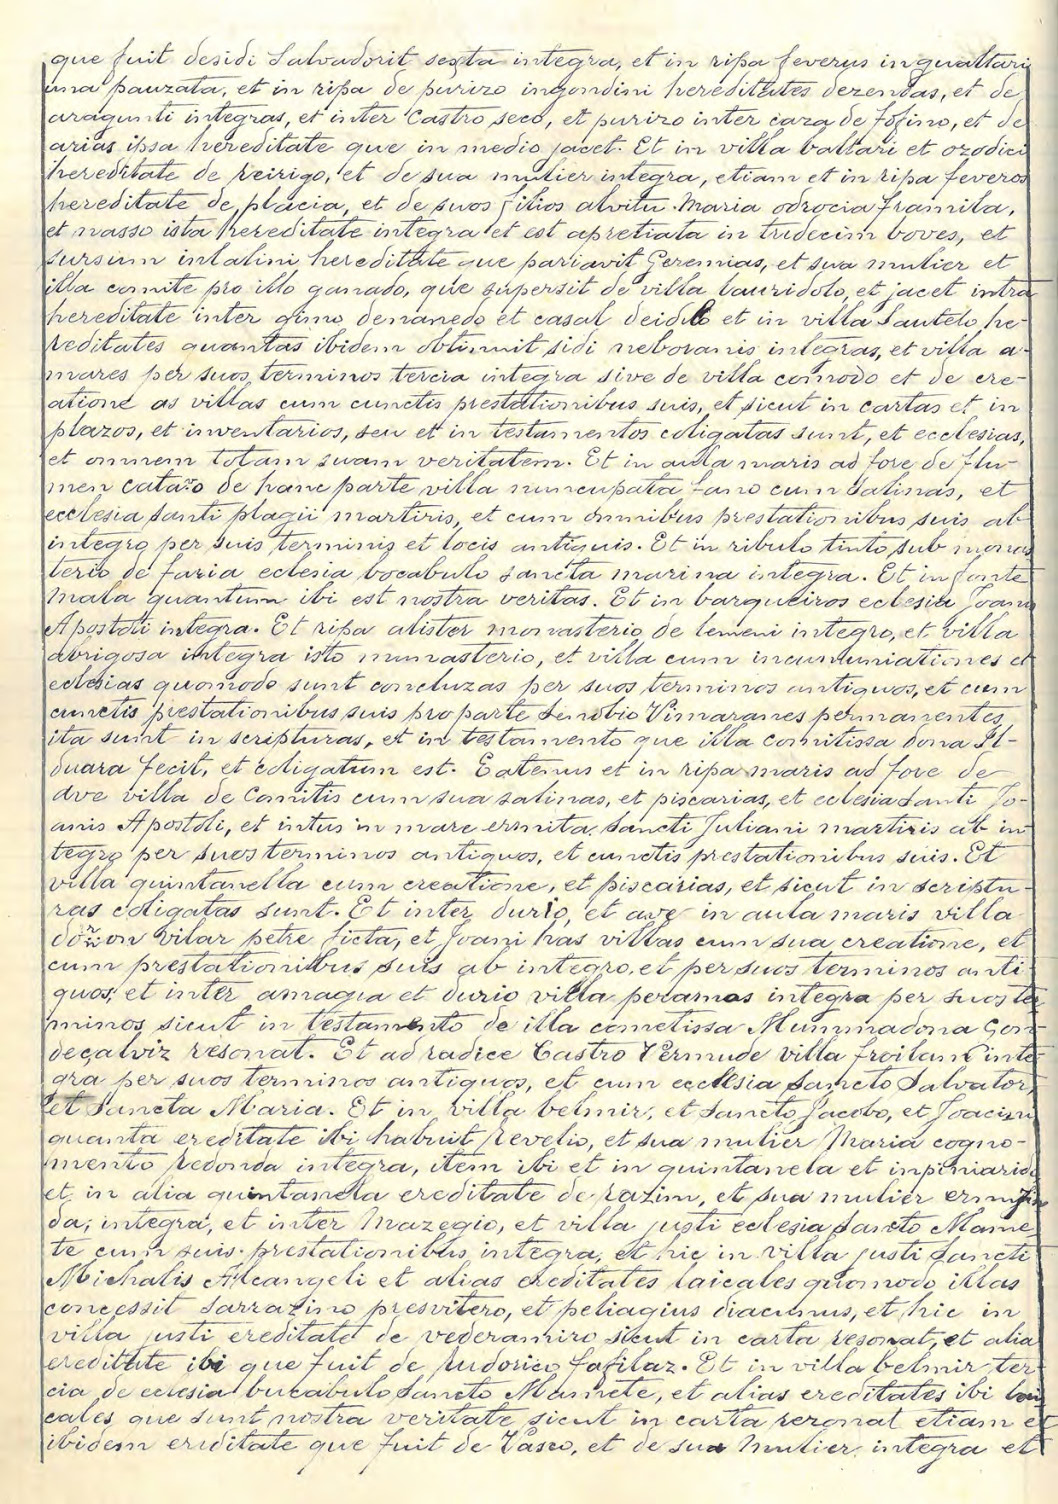 que fuit desidi Salvadorit sexta integra, et in ripa feverus in gualtari
una pauzata, et in ripa de purizo ingondini hereditates dezentas, et de
aragunti integras, et inter Castro seco, et purizo inter caza de fofino, et de
arias ipsa hereditate que in medio jacet. Et in villa baltari et ozodici
hereditate de reirigo, et de sua mulier integra, etiam et in ripa feveros
hereditate de placia, et de suos filios alvitu Maria odrocia framila,
et nasso ista hereditate integra et est apretiata in tridecim boves, et
sursum in lalini hereditate que pariavit Geremias, et sua mulier et
illa comite pro illo ganado, que supersit de villa lauridolo et jacet intra
hereditate inter gimo denanedo et casal et in villa Sautelo, he-
reditates quantas ibidem obtinuit sidi nebozanis integras, et villa a-
mares per suos terminos tercia integra sive de villa comodo et de cre-
atione as villas cum cunctis prestationibus suis, et sicut in cartas et in
plazos, et inventarios, seu et in testamentos coligatas sunt, et ecclesias,
et omnem totam suam veritatem. Et in aula maris ad fore de flu-
men de hanc parte villa nuncupata fano cum Salinas, et
ecclesia Santi plagii martiris, et cum omnibus prestationibus suis ab
integro per suis terminis et locis antiquis. Et in ribulo tinto sub monas
terio de faria eclesia bocabulo sancta marina integra. Et in fonte
Mala quantum ibi est nostra veritas. Et in barqueiros eclesia Joani
Apostoli integra. Et ripa alister monasterio de lemeni integro, et villa
abrigosa integra isto munasterio, et villa cum incumuniationes et
eclesias quomodo sunt concluzas per suos terminos antiquos, et cum
cunctis prestationibus suis pro parte Senobio Vimaranes permanentes
ita sunt in scripturas, et in testamento que illa comitissa dona Il-
duara fecit, et coligatum est. Eatenus et in ripa maris ad fore de
ave villa de Comitis cum sua salinas, et piscarias, et eclesia Santi Jo-
anis Apostoli, et intus in mare ermita Sancti Juliani martiris ab in-
tegro per suos terminos antiquos, et cunctis prestationibus suis. Et
villa quintanella cum creatione, et piscarias, et sicut in scriptu-
ras coligatas sunt. Et inter durio, et ave in aula maris villa
vilar petre ficta, et Joani has villas cum sua creatione, et
cum prestationibus suis ab integro, et per suos terminos anti
quos; et inter amagia et durio villa perarnas integra per suos ter
minos sicut in testamento de illa cometissa Mummadona Gon-
deçalviz resonat. Et ad radice Castro Vermude villa froilani inte-
gra per suos terminos antiquos, et cum ecclesia Sancto Salvator,
et Sancta Maria. Et in villa belmir, et Sancto Jacobo, et Joacini
quanta ereditate ibi habuit Revelio, et sua mulier Maria cogno-
mento Redonda integra, item ibi et in quintanela et inpiniario
et in alia quintanela ereditate de razim, et sua mulier ermesin
da, integra, et inter Mazegio, et villa justi eclesia Sancto Mame-
te cum suis prestationibus integra, et hic in villa justi Sancti
Michalis Alcangeli et alias ereditates laicales quomodo illas
concessit Sarrazino presvitero, et peliagius diaconus, et hic in
villa justi ereditate de vederamiro sicut in carta resonat, et alia
ereditate ibi que fuit de Rudorico fafilaz. Et in villa belmir ter-
cia de eclesia bucabulo Sancto Mamete, et alias ereditates ibi lai
cales que sunt nostra veritate sicut in carta rezonat etiam et
ibidem ereditate que fuit de Vasco, et de sua Mulier integra et